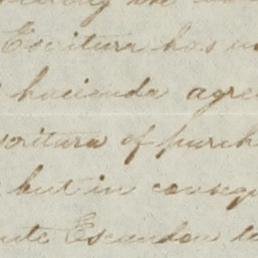 Escritura has
hacienda agre
scritura of purch
but in conseq
Escandon